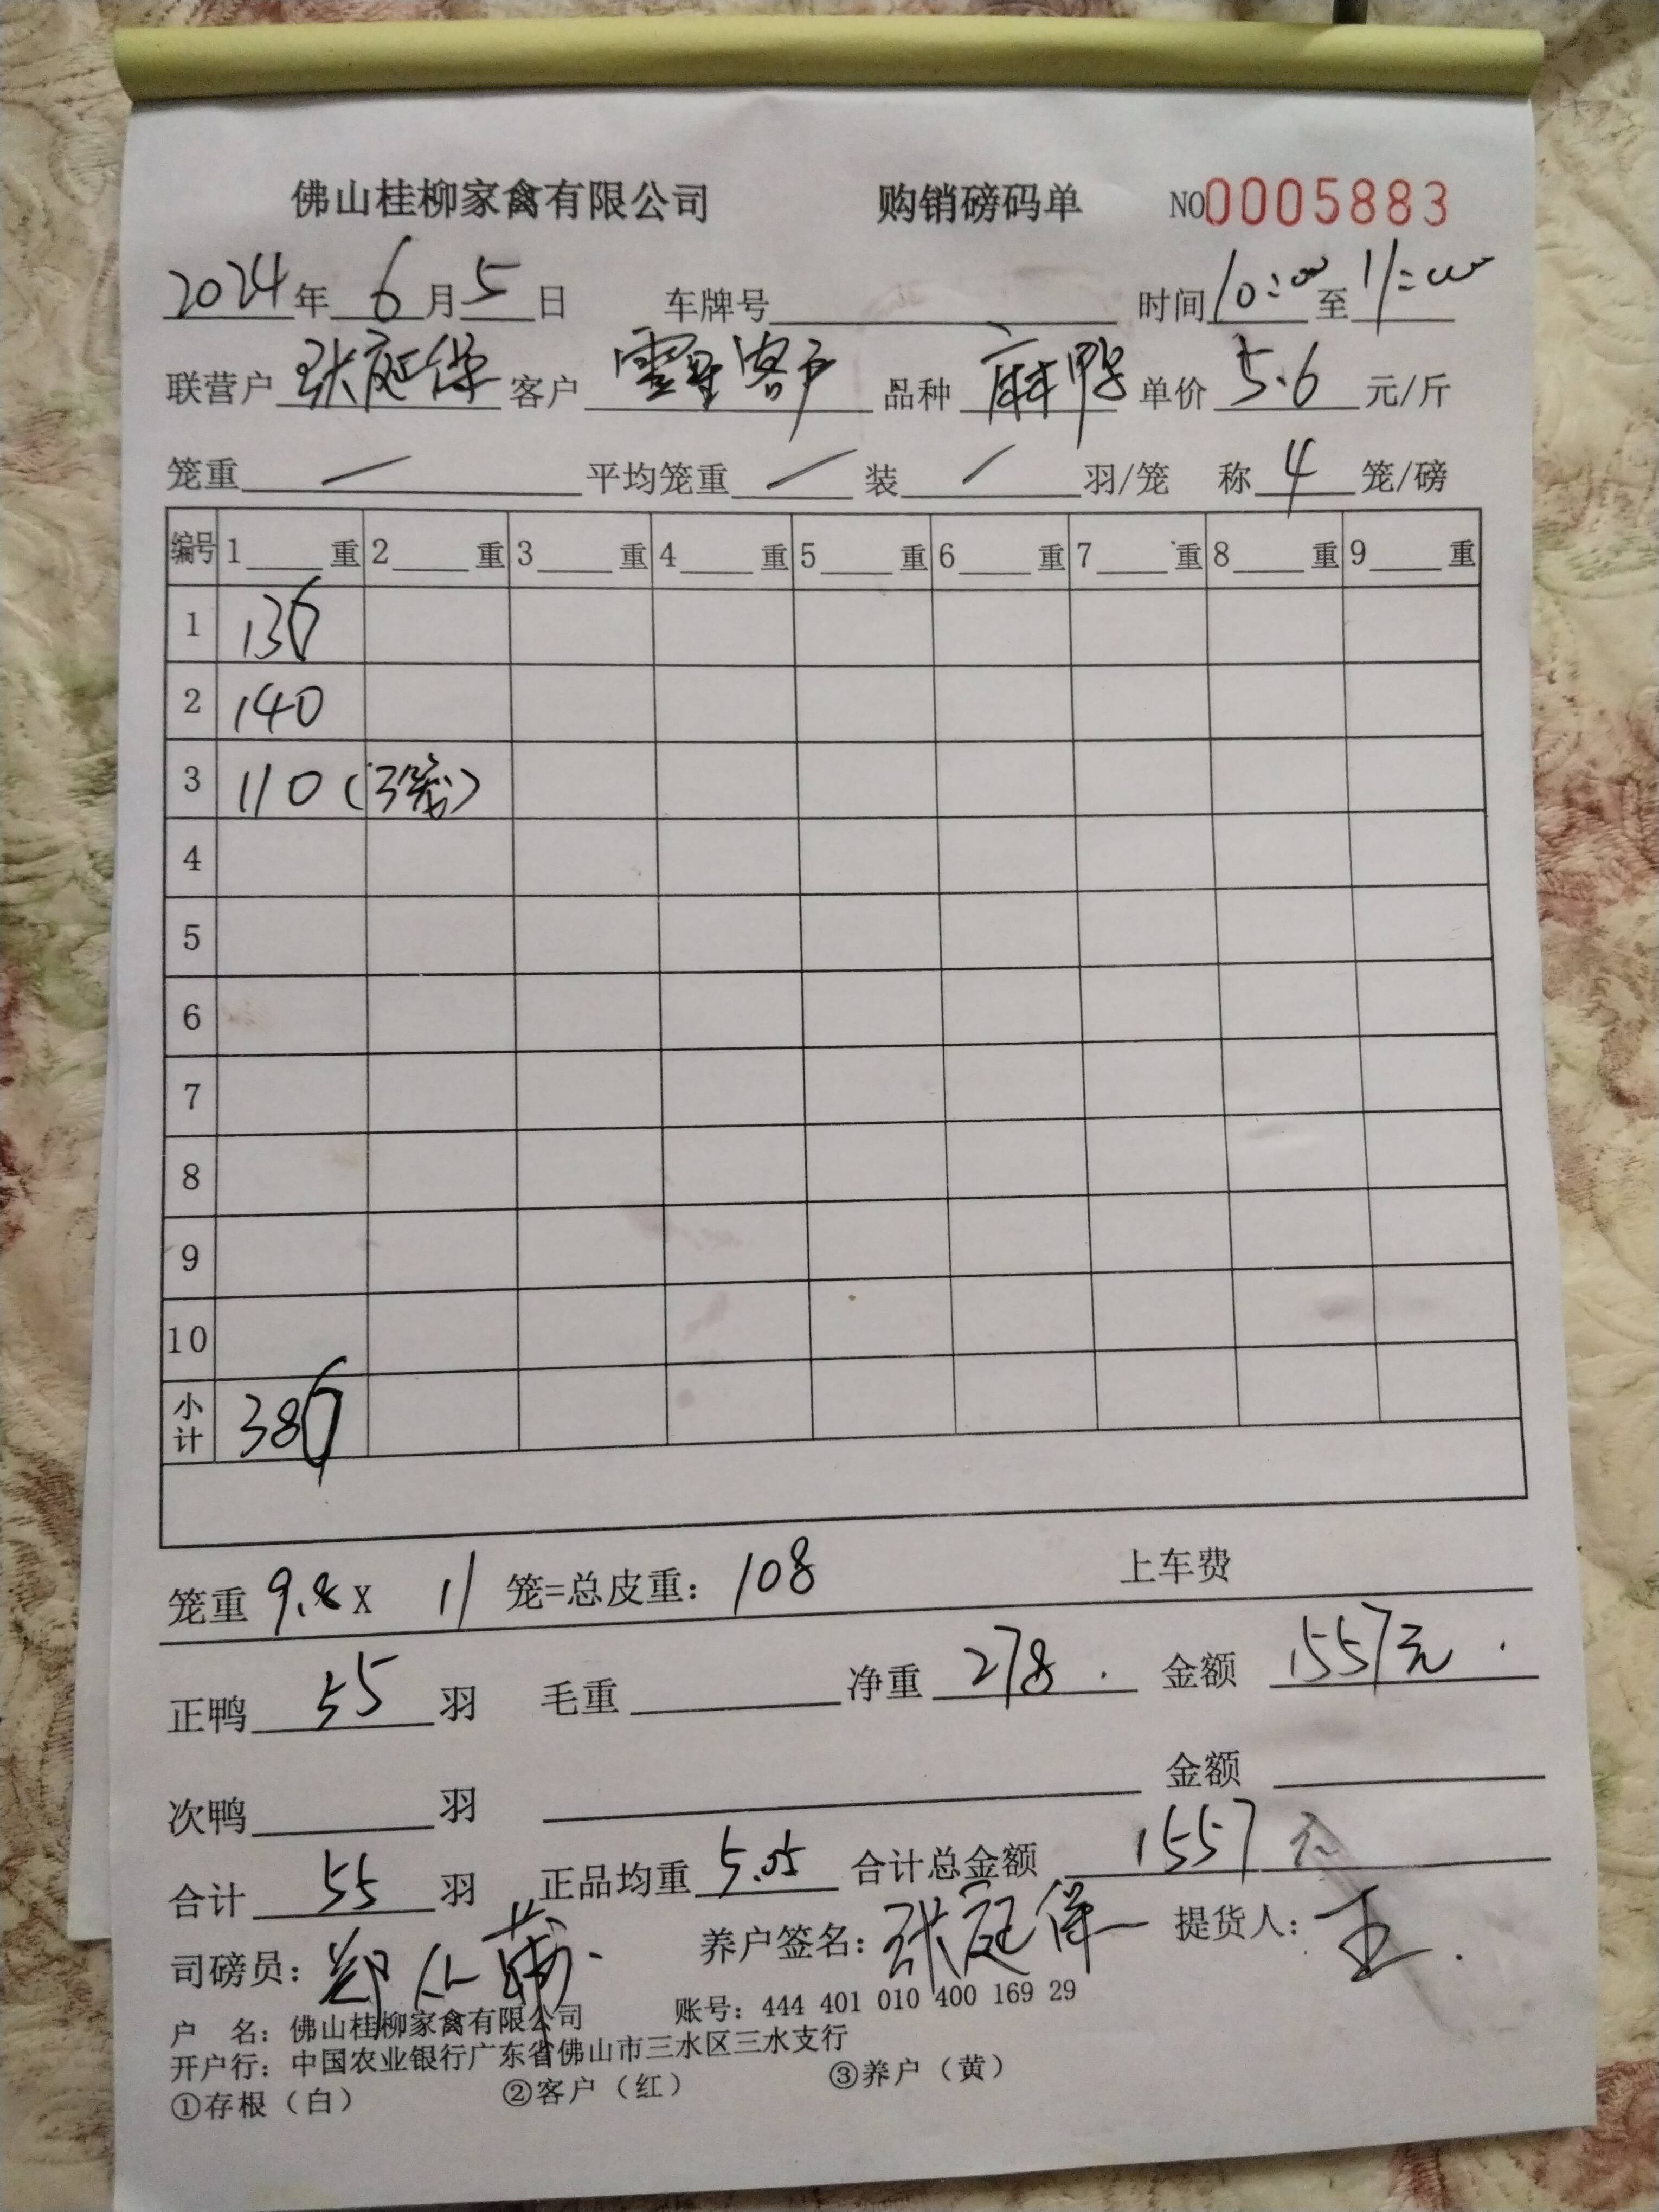 佛山桂柳家禽有限公司 购销磅码单 NO0005883
2024年 6月5日 车牌号 时间10:00至11:00
联营户 张庭保 客户 零星客户 品种 麻鸭 单价 5.6 元/斤
笼重 / 平均笼重 / 装 / 羽/笼 称 4 笼/磅
编号 1 重 2 重 3 重 4 重 5 重 6 重 7 重 8 重 9 重
1 136
2 140
3 110(3笼)
4
5
6
7
8
9
10
小计 386
笼重 9.8 X 11 笼=总皮重: 108 上车费
正鸭 55 羽 毛重 净重 278. 金额 1557元.
次鸭 羽 金额
合计 55 羽 正品均重 5.05 合计总金额 1557元
司磅员: 郑 养户签名: 张庭保 提货人: 王.
户 名: 佛山桂柳家禽有限公司 账号: 444 401 010 400 169 29
开户行: 中国农业银行广东省佛山市三水区三水支行
①存根(白) ②客户(红) ③养户(黄)